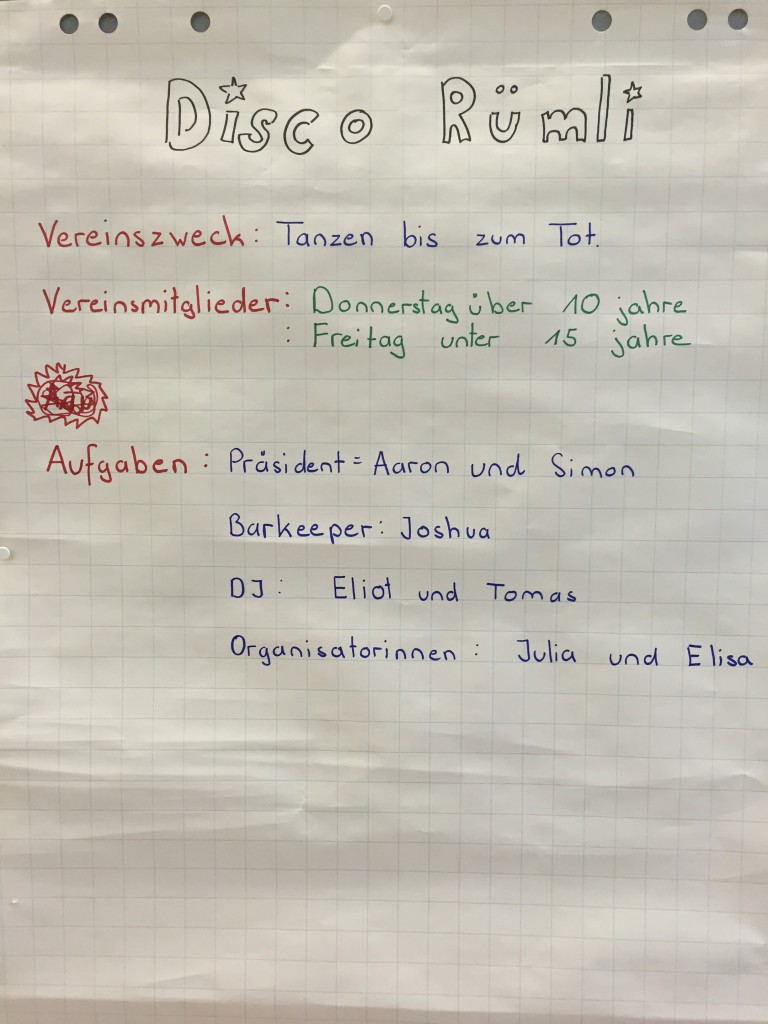 Disco Rümli
Vereinszweck: Tanzen bis zum Tot.
Vereinsmitglieder: Donnerstag über 10 jahre
: Freitag unter 15 jahre
Aufgaben: Präsident = Aaron und Simon
Barkeeper: Joshua
DJ: Eliot und Tomas
Organisatorinnen: Julia und Elisa